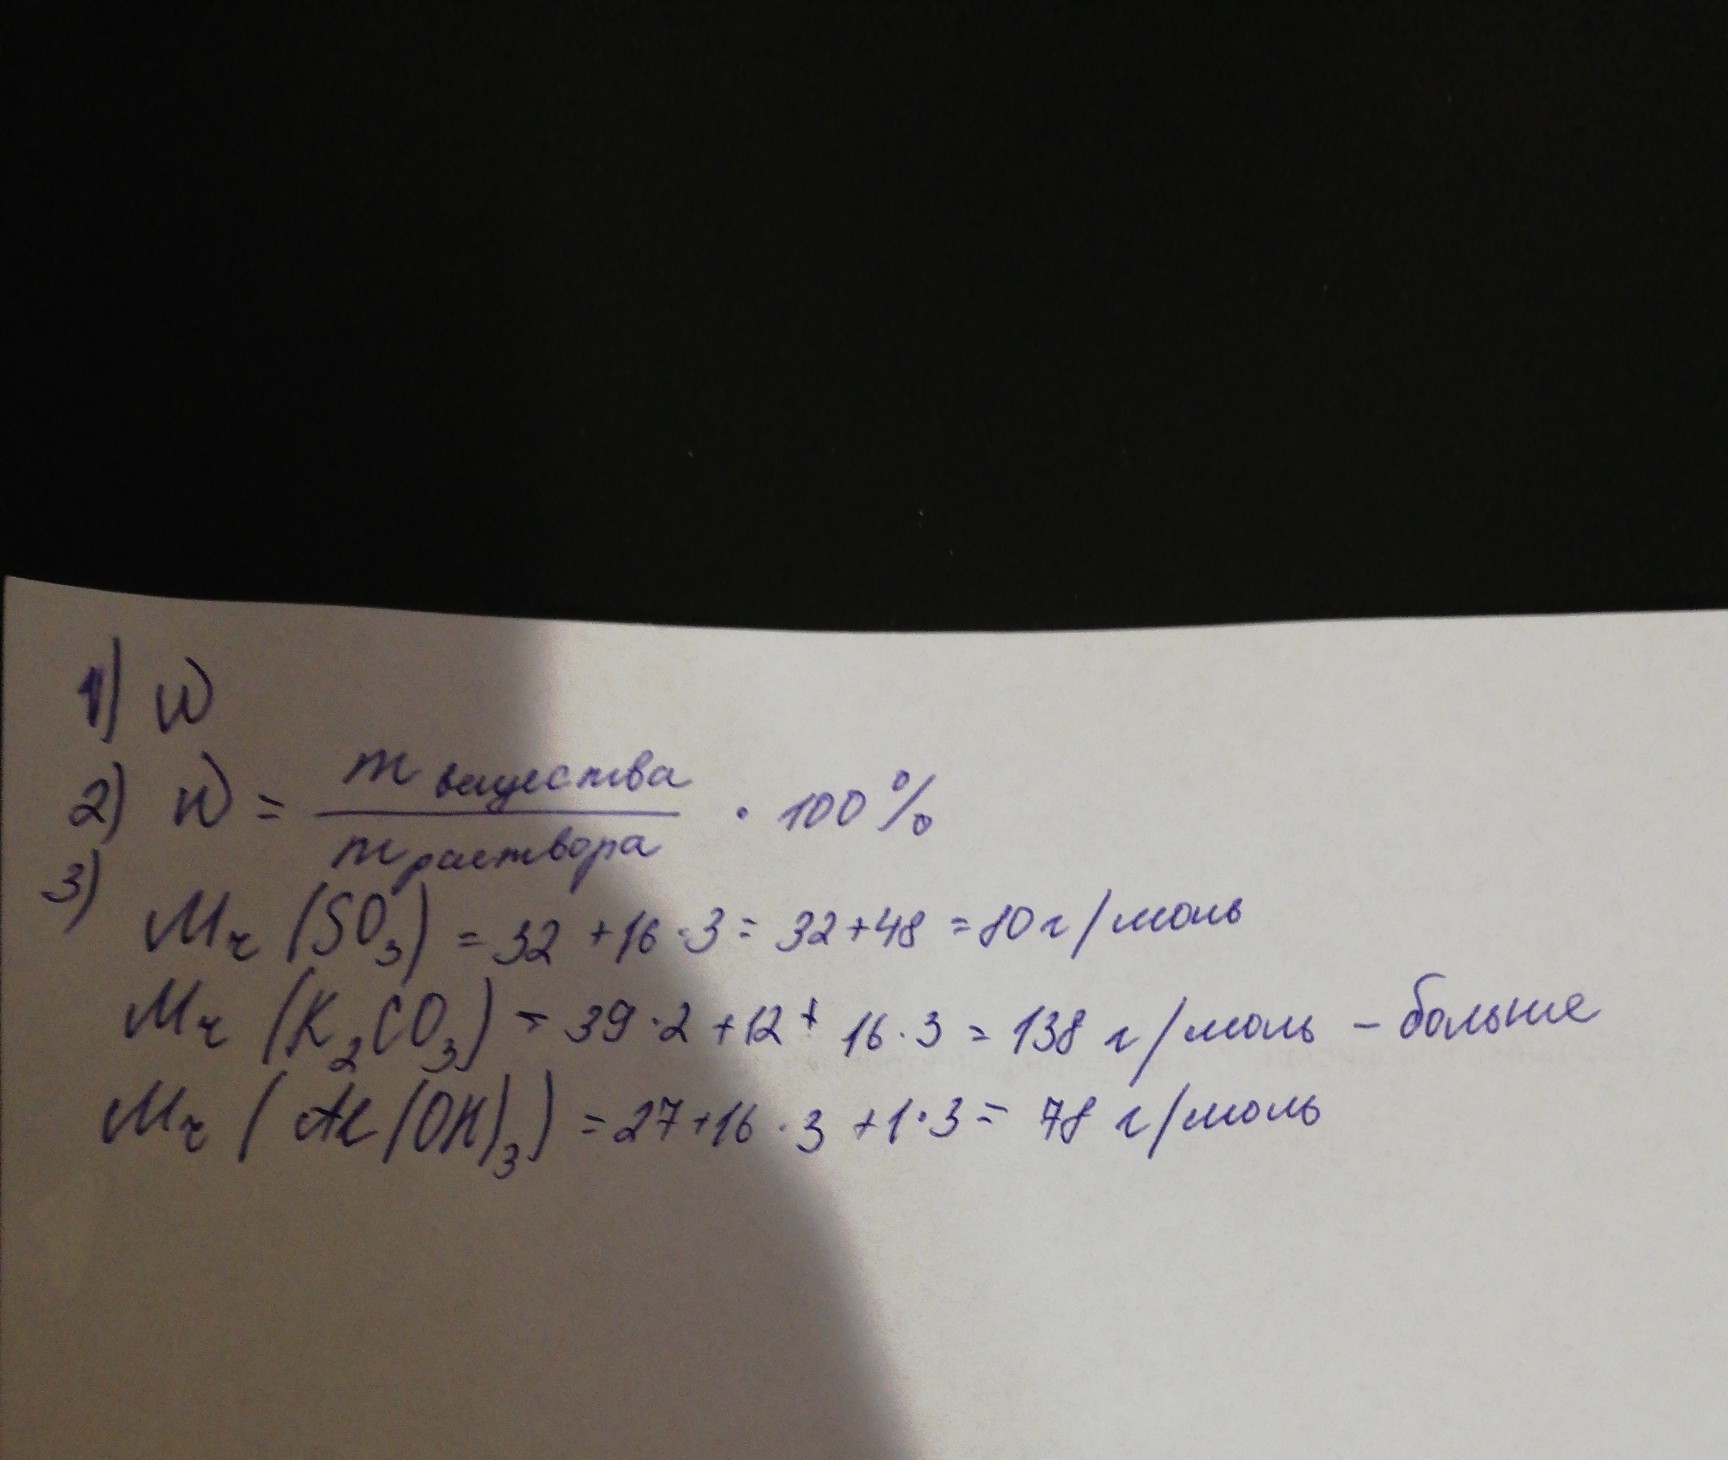 1) W
2) W = m вещества / m раствора · 100%
3)
Mr (SO₃) = 32 + 16 · 3 = 32 + 48 = 80 г/моль
Mr (K₂CO₃) = 39 · 2 + 12 + 16 · 3 = 138 г/моль – больше
Mr (Al(OH)₃) = 27 + 16 · 3 + 1 · 3 = 78 г/моль